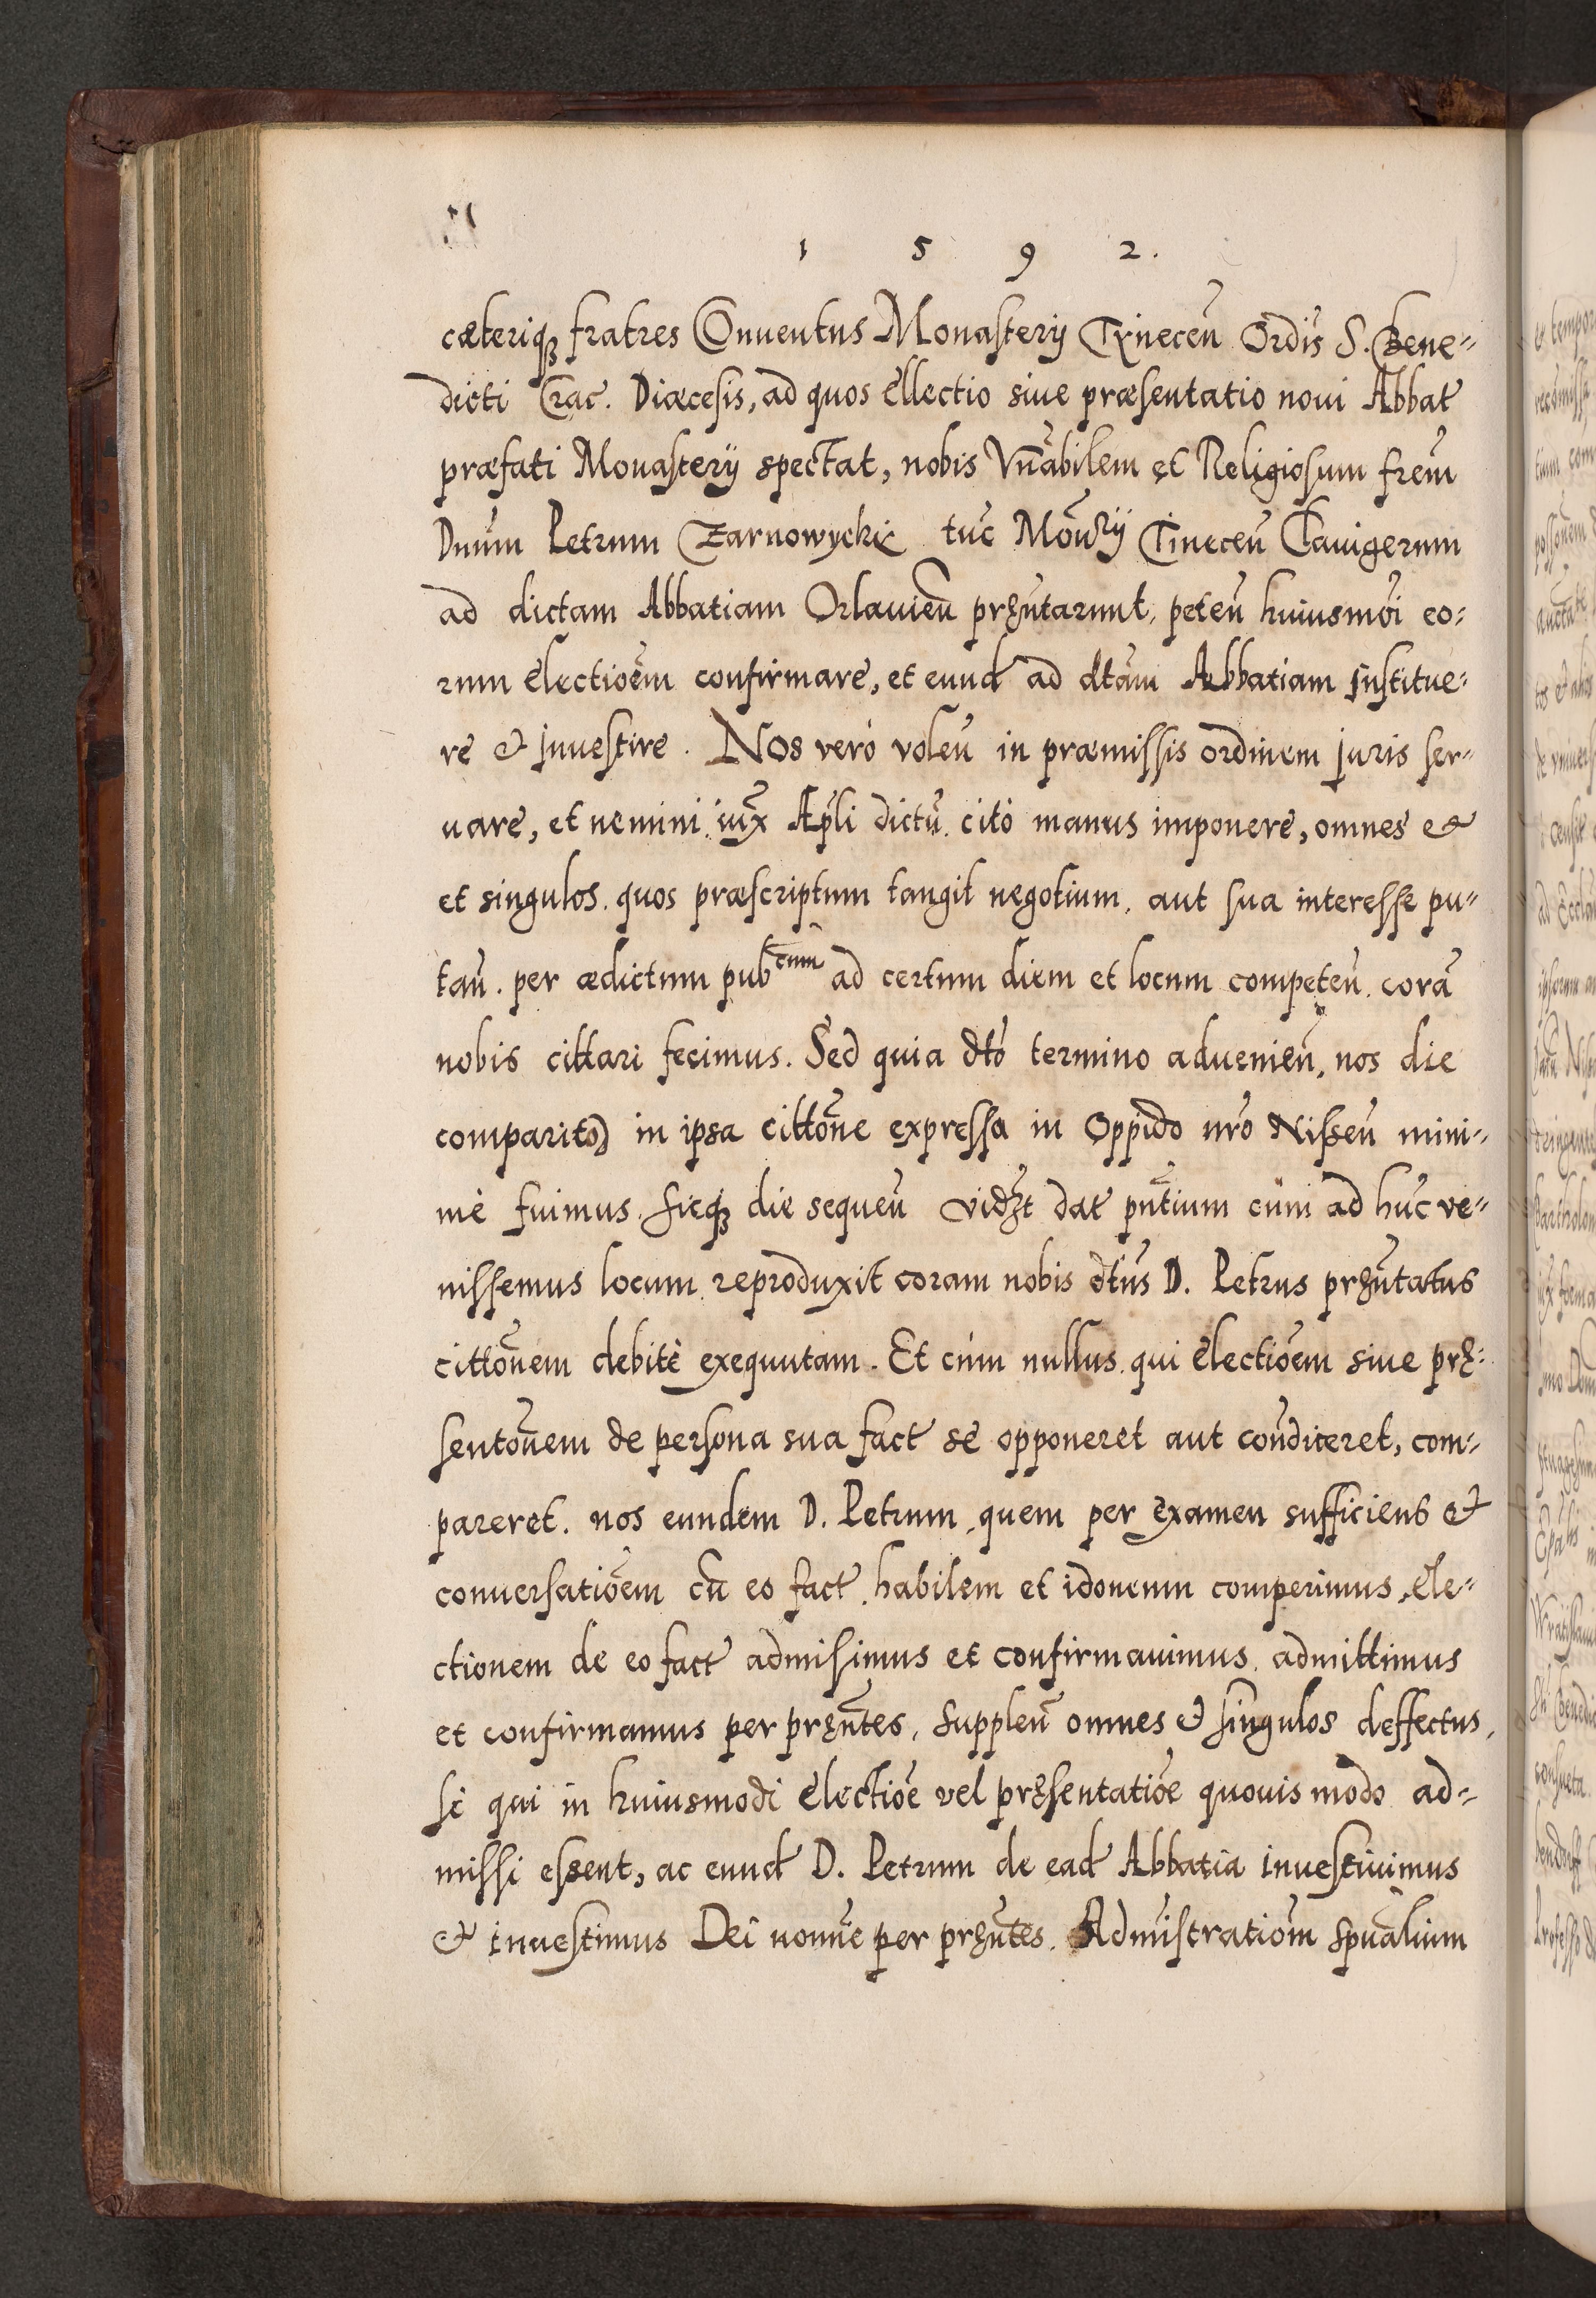 1592.
cæteriqꝫ fratres Conuentus Monasterij Tÿneceñ Ordĩs S. Bene⸗
dicti Crac. Diæcesis, ad quos ellectio siue præsentatio noui Abbat
præfati Monasterij spectat, nobis Vñabilem et Religiosum frẽm
Dnũm Petrum Czarnowycky tũc Mõnrij Tineceñ Clauigerum
ad dictam Abbatiam Orlauieñ pręñtarunt, peteñ huiusmõi eo⸗
rum electiõem confirmare, et eund ad dtãm Abbatiam Institue⸗
re & Inuestire. Nos verò voleñ in præmissis ordinem juris ser⸗
uare, et nemini iux̃ Apli dictũ cito manus imponere, omnes &
et singulos quos præscriptum tangit negotium, aut sua interesse pu⸗
tañ. per ædictum pubcum ad certum diem et locum competeñ. corã
nobis cittari fecimus. Sed quia dtõ termino aduenieñ, nos die
comparitõ in ipsa cittõne expressa in Oppido nrõ Nisseñ mini⸗
mè fuimus. sicqꝫ die sequeñ vidꝫt dat pñtium cùm ad hũc ve⸗
nissemus locum reproduxit coram nobis dtũs D. Petrus pręñtatus
cittõnem debitè exequutam. Et cùm nullus qui electiõem siue prę⸗
sentõnem de persona sua fact se opponeret aut cõndiceret, com⸗
pareret. nos eundem D. Petrum, quem per examen sufficiens &
conuersatiõem cũ eo fact habilem et idoneum comperimus, ele⸗
ctionem de eo fact admisimus et confirmauimus. admittimus
et confirmamus per pręñtes, suppleñ omnes & singulos deffectus,
si qui in huiusmodi electiõe vel pręsentatiõe quouis modo ad⸗
missi essent, ac eund D. Petrum de ead Abbatia inuestiuimus
& inuestimus Dei nomĩe per pręñtes. Admĩstratiõm spũalium